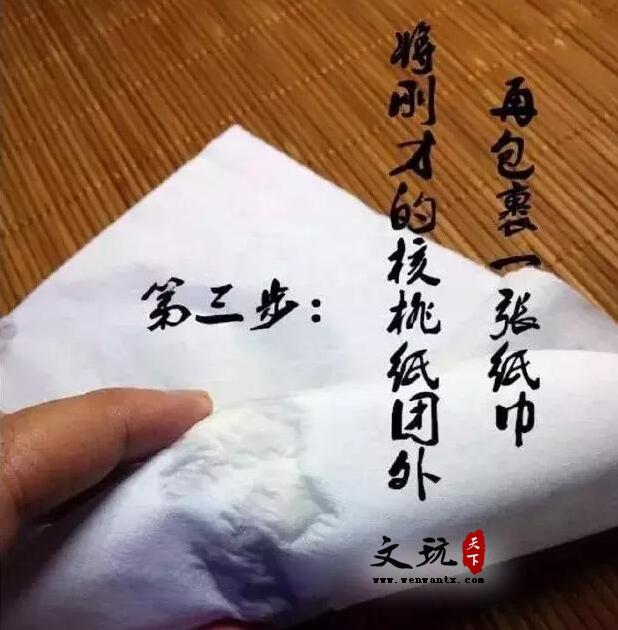 第三步：
将刚才的核桃纸团外
再包裹一张纸巾
文玩天下
www.wenwantx.com